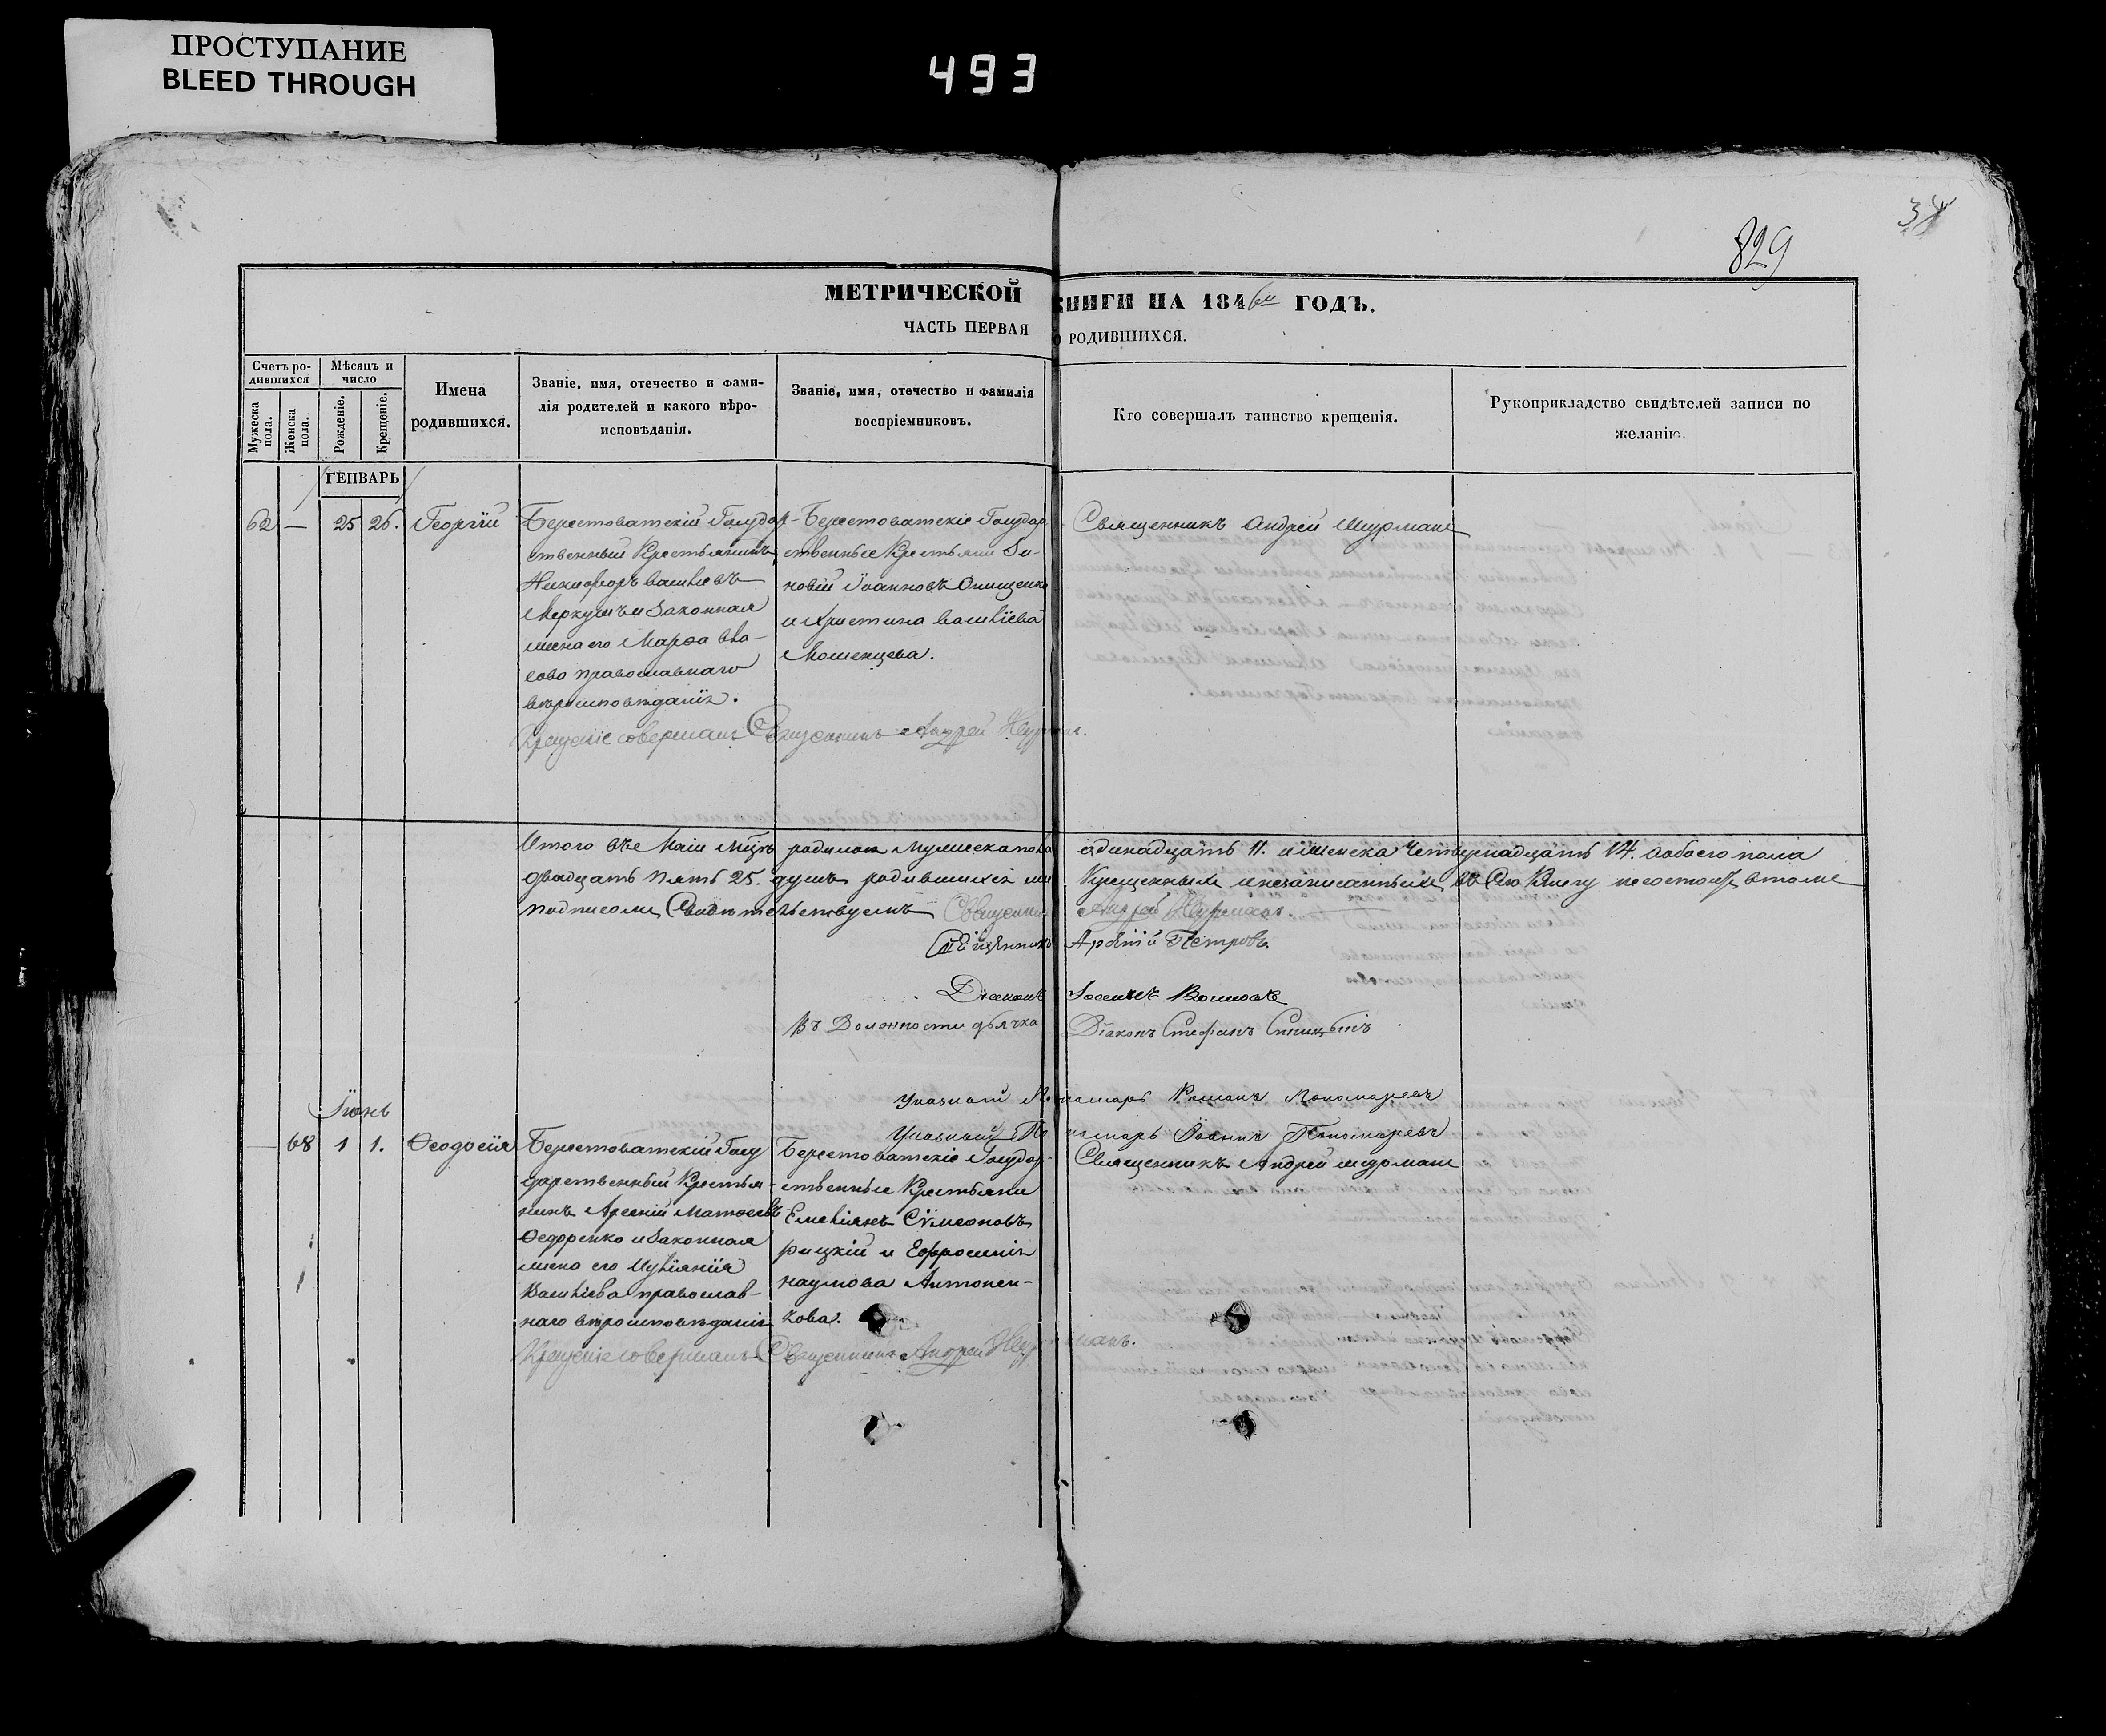 ПРОСТУПАНИЕ
BLEED THROUGH
493
829
МЕТРИЧЕСКОЙ КНИГИ НА 1846й ГОДЪ.
ЧАСТЬ ПЕРВАЯ О РОДИВШИХСЯ.
Счетъ родившихся
Мужеска пола.
Женска пола.
Мѣсяцъ и число
Рожденіе.
Крещеніе.
Имена родившихся.
Званіе, имя, отечество и фами-
лія родителей и какого вѣро-
исповѣданія.
Званіе, имя, отечество и фамилія
воспріемниковъ.
Кто совершалъ таинство крещенія.
Рукоприкладство свидѣтелей записи по
желанію.
ГЕНВАРЬ
62 — 25 26. Георгій
Берестоватскій Государ-
ственный Крестьянинъ
Никифоръ Васильевъ
Меркушъ и Законная
жена его Марѳа Вла-
сова православнаго
вѣроисповѣданія.
Берестоватскіе Государ-
ственные Крестьяни Зи-
новій Іоанновъ Онищенко
и Христина Васильева
Мошенцева.
Священникъ Андрей Шурманъ
Крещеніе совершалъ Священникъ Андрей Шурманъ.
Итого въ Маіи мцѣ родилося мужеска пола одинадцать 11. и женска четырнадцать 14. а обоего пола
двадцать пять 25. душъ родившихся не крещенныхъ и незаписанныхъ въ Сію Книгу несостоитъ в томъ
подписомъ Свидѣтельствуемъ Священникъ Андрей Шурманъ.
Священникъ Арсеній Петровъ
Діаконъ Іосифъ
Въ Должности дьячка Діаконъ Стефанъ Спицынъ
Указный Пономарь Романъ Пономаревъ
Указный Пономарь Іоаннъ Пономаревъ
Іюнь
— 68 1 1. Ѳеодосія
Берестоватскій Госу
дарственный Крестья-
нинъ Арсеній Матѳеевъ
Ѳедоренко и Законная
жена его Иуліянія
Васильева православ-
наго вѣроисповѣданія
Берестоватскіе Государ-
ственные Крестьяни
Емеліянъ Сѷмеоновъ
рицкій и Ефросинія
наумова Антонен-
кова.
Священникъ Андрей Шурманъ
Крещеніе совершалъ Священникъ Андрей Шурманъ.